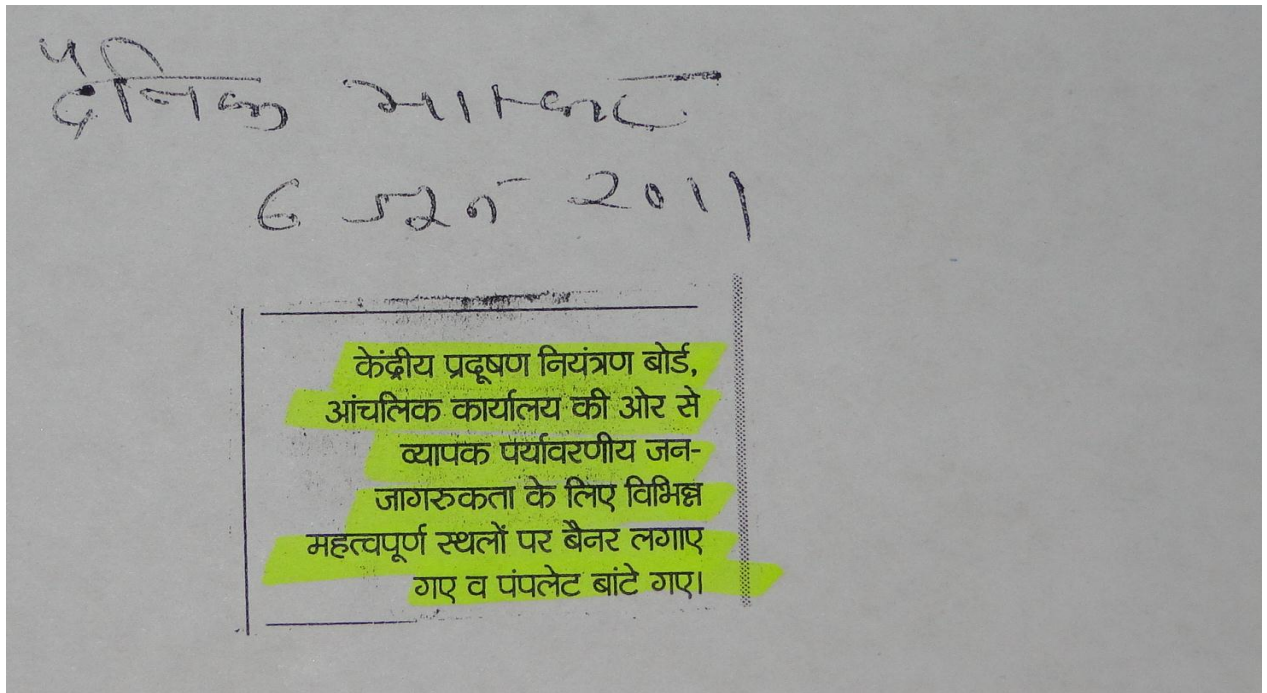 दैनिक भास्कर
6 जून 2011
केंद्रीय प्रदूषण नियंत्रण बोर्ड,
आंचलिक कार्यालय की ओर से
व्यापक पर्यावरणीय जन-
जागरुकता के लिए विभिन्न
महत्वपूर्ण स्थलों पर बैनर लगाए
गए व पंपलेट बांटे गए।